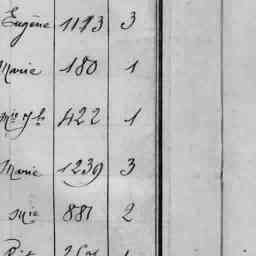 Eugène 1193 3
Marie 180 1
422 1
Marie 1239 3
Mie 881 2